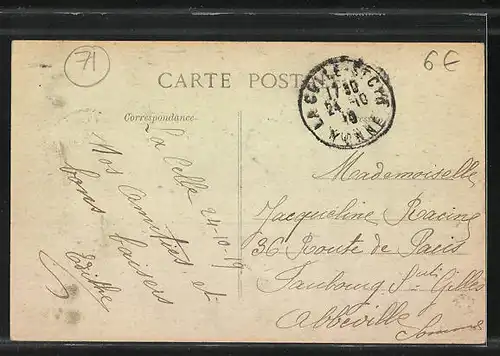 71
6€
CARTE POST
LA CELLE-ST CYR
17 30
24 -10
19
YONNE
Correspondance
La Celle 24-10-19
Nos Amitiés et
bons baisers
Mademoiselle
Jacqueline Racine
36 Route de Paris
Faubourg St Gilles
Abbeville
Somme